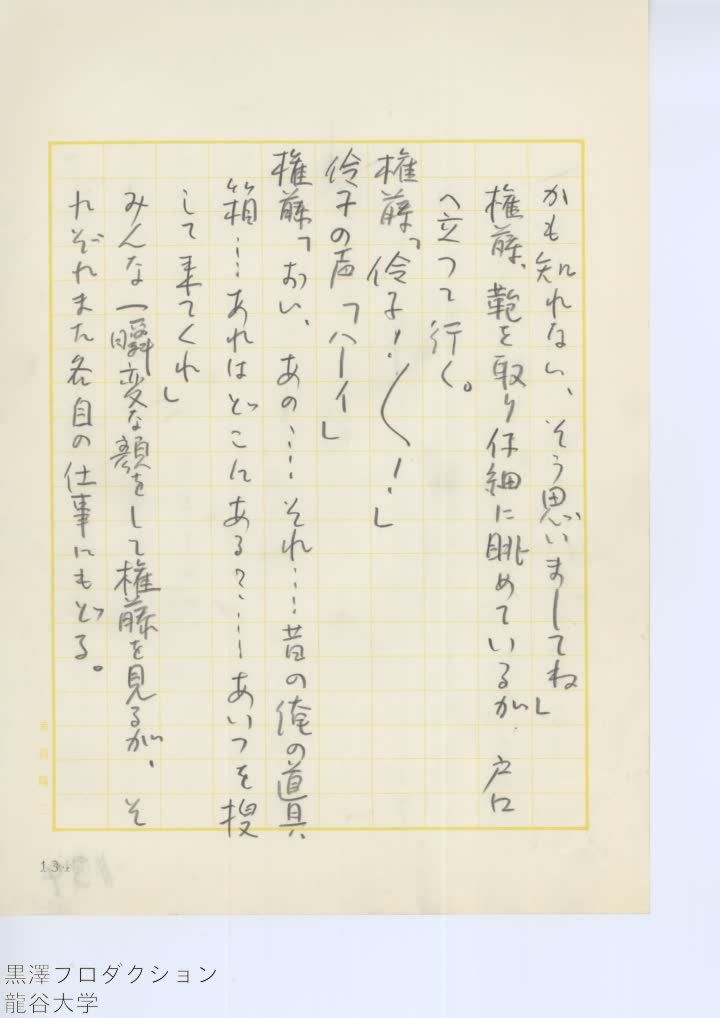 かも知れない、そう思いましてね」
権藤、鞄を取り仔細に眺めているが、戸口
へ立つて行く。
権藤「伶子！〱！」
伶子の声「ハーイ」
権藤「おい、あの……それ……昔の俺の道具
箱……あれはどこにある？……あいつを捜
して来てくれ」
みんな一瞬変な顔をして権藤を見るが、そ
れぞれまた各自の仕事にもどる。
134
黒澤プロダクション
龍谷大学